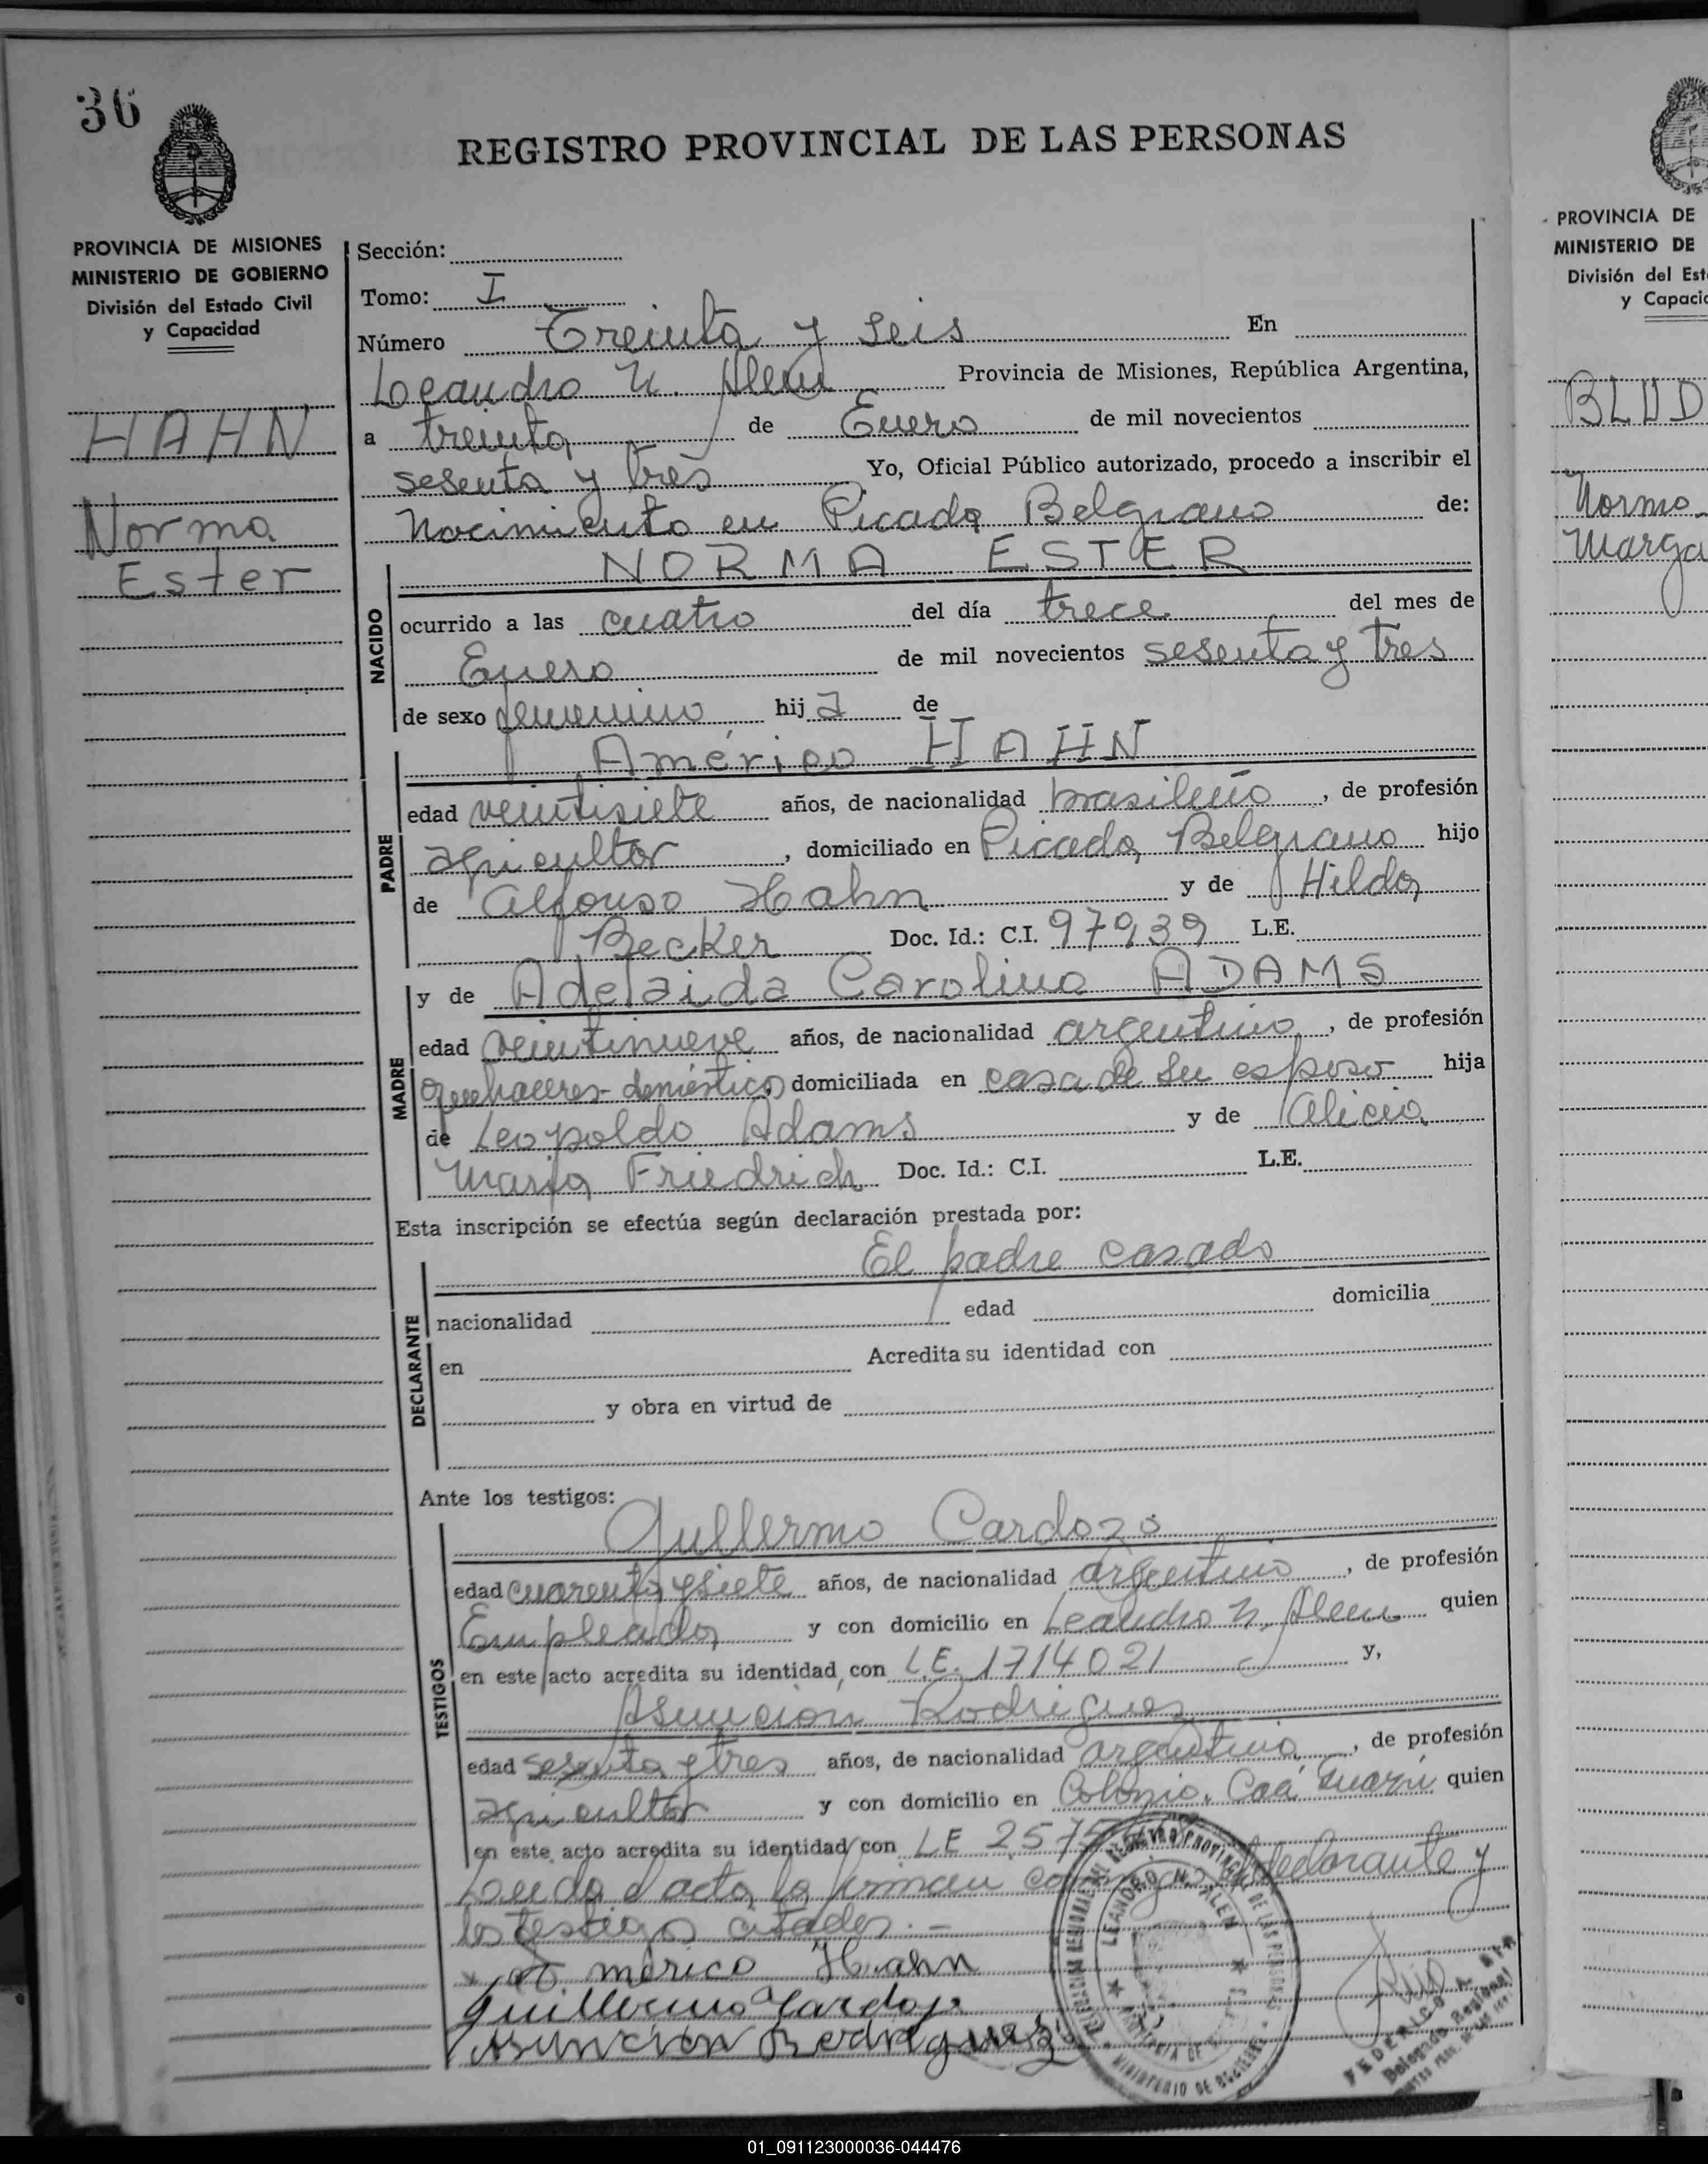 36
REGISTRO PROVINCIAL DE LAS PERSONAS
PROVINCIA DE MISIONES
MINISTERIO DE GOBIERNO
División del Estado Civil
y Capacidad
HAHN
Norma
Ester
Sección:
Tomo: I
Número Treinta y seis En
Leandro N. Alem Provincia de Misiones, República Argentina,
a treinta de Enero de mil novecientos
sesenta y tres Yo, Oficial Público autorizado, procedo a inscribir el
nacimiento en Picada Belgrano de:
NORMA ESTER
NACIDO
ocurrido a las cuatro del día trece del mes de
Enero de mil novecientos sesenta y tres
de sexo femenino hija de
Américo HAHN
PADRE
edad veintisiete años, de nacionalidad brasileño, de profesión
agricultor, domiciliado en Picada Belgrano hijo
de Alfonso Hahn y de Hilda
Becker Doc. Id.: C.I. 97039 L.E.
y de Adelaida Carolina ADAMS
MADRE
edad veintinueve años, de nacionalidad argentina, de profesión
quehaceres domésticos domiciliada en casa de su esposo hija
de Leopoldo Adams y de Alicia
María Friedrich Doc. Id.: C.I. L.E.
Esta inscripción se efectúa según declaración prestada por:
El padre casado
DECLARANTE
nacionalidad edad domicilia
en Acredita su identidad con
y obra en virtud de
Ante los testigos:
Guillermo Cardozo
TESTIGOS
edad cuarenta y siete años, de nacionalidad argentino, de profesión
Empleado y con domicilio en Leandro N. Alem quien
en este acto acredita su identidad con L.E. 1714021 y,
Asunción Rodriguez
edad sesenta y tres años, de nacionalidad argentino, de profesión
agricultor y con domicilio en Colonia Caá Guazú quien
en este acto acredita su identidad con LE 2575
Leida el acta la firman conmigo el declarante y
los testigos citados.-
Américo Hahn
Guillermo Cardozo
Asuncion Rodriguez
LEANDRO N. ALEM
MINISTERIO DE GOBIERNO
FEDERICO A.
Delegado Regional
PROVINCIA DE
MINISTERIO DE
División del Est
y Capacid
Norma
Marga
01_091123000036-044476